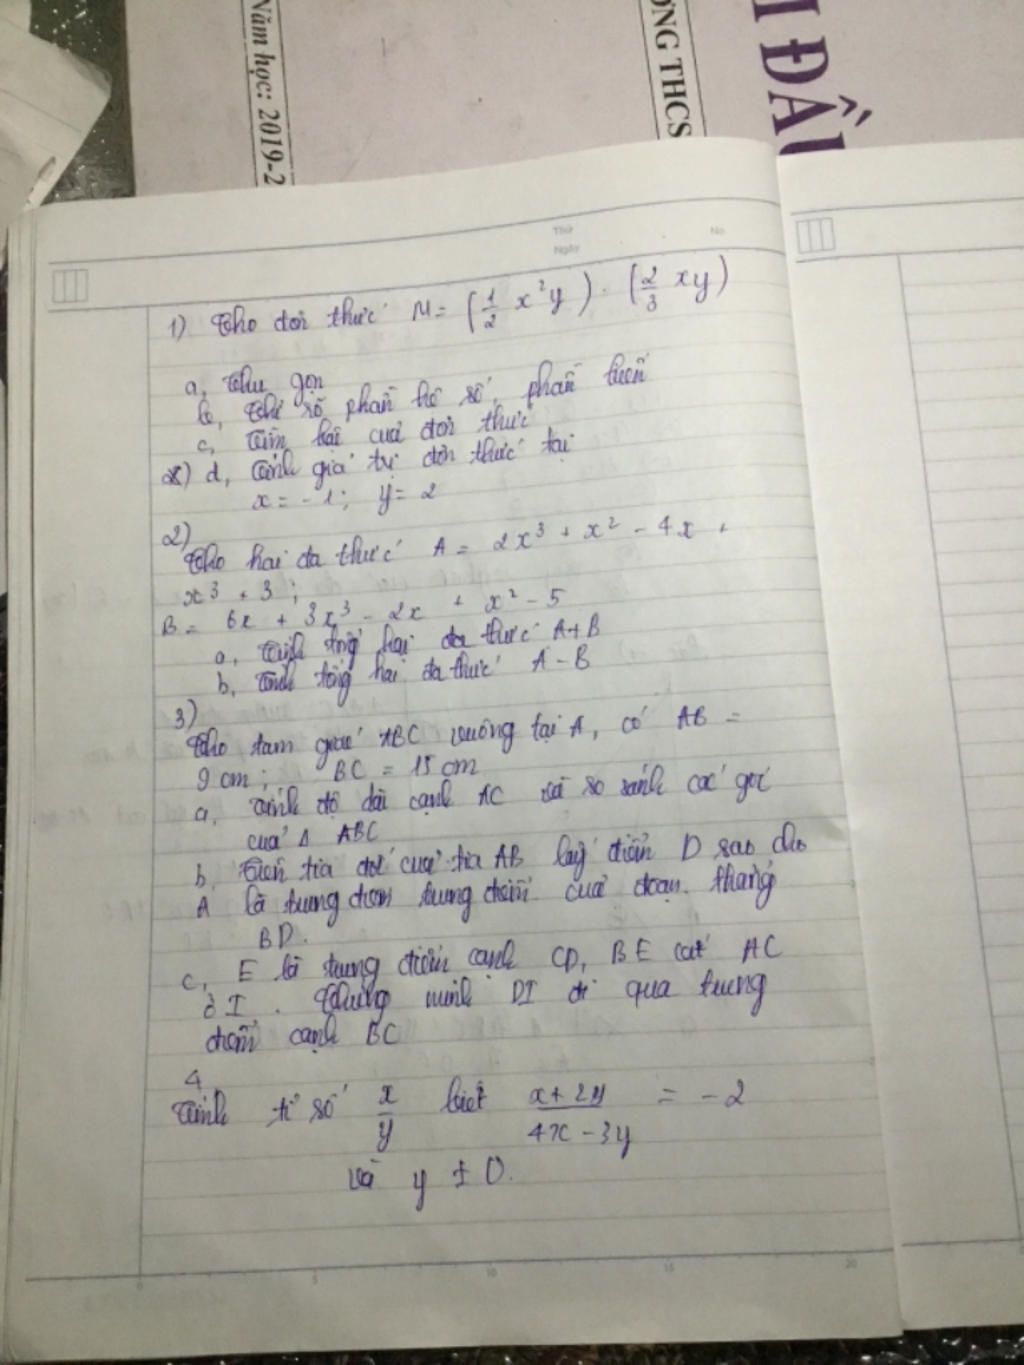 Năm học: 2019-2
ỜNG THCS
I ĐẦU
Thứ
Ngày
No
1) Cho đơn thức M = (1/2 x²y) . (2/3 xy)
a, Thu gọn
b, Chỉ rõ phần hệ số, phần biến
c, Tìm bậc của đơn thức
d, Tính giá trị đơn thức tại
x = -1; y = 2
2)
Cho hai đa thức A = 2x³ + x² - 4x +
x³ + 3 ;
B = 6x + 3x³ - 2x + x² - 5
a, Tính tổng hai đa thức A+B
b, Tính tổng hai đa thức A - B
3)
Cho tam giác ABC vuông tại A, có AB =
9 cm; BC = 15 cm
a, Tính độ dài cạnh AC và so sánh các góc
của Δ ABC
b, Trên tia đối của tia AB lấy điểm D sao cho
A là trung điểm trung điểm của đoạn thẳng
BD.
c, E là trung điểm cạnh CD, BE cắt AC
ở I . Chứng minh DI đi qua trung
điểm cạnh BC
4
Tính tỉ số x/y biết (x + 2y)/(4x - 3y) = -2
và y ≠ 0.
5
10
15
20